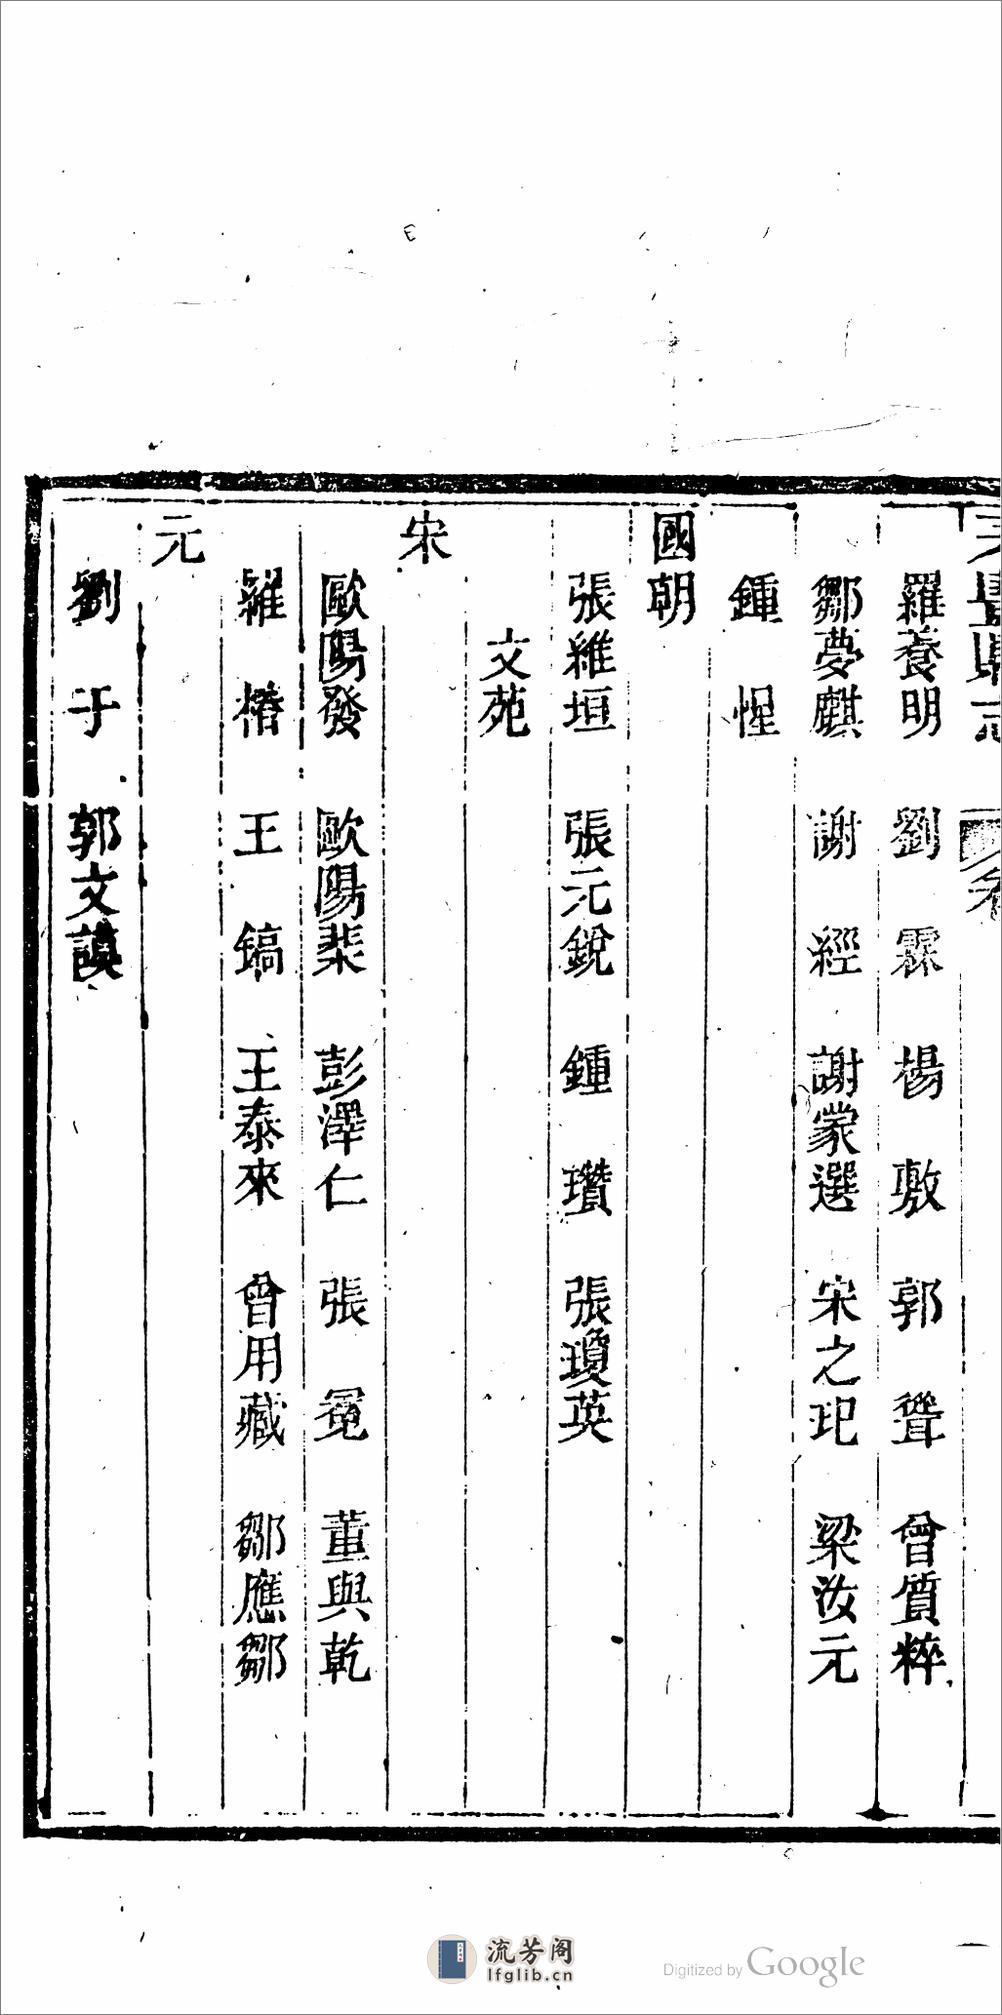 羅養明 劉霖 楊敷 郭聳 曾質粹
鄒夢麒 謝經 謝蒙選 宋之玘 梁汝元
鍾惺
國朝
張維垣 張元銳 鍾瓚 張瓊英
文苑
宋
歐陽發 歐陽棐 彭澤仁 張冕 董與乾
羅椿 王鎬 王泰來 曾用藏 鄒應鄒
元
劉于 郭文謨
流芳阁
lfglib.cn
Digitized by Google